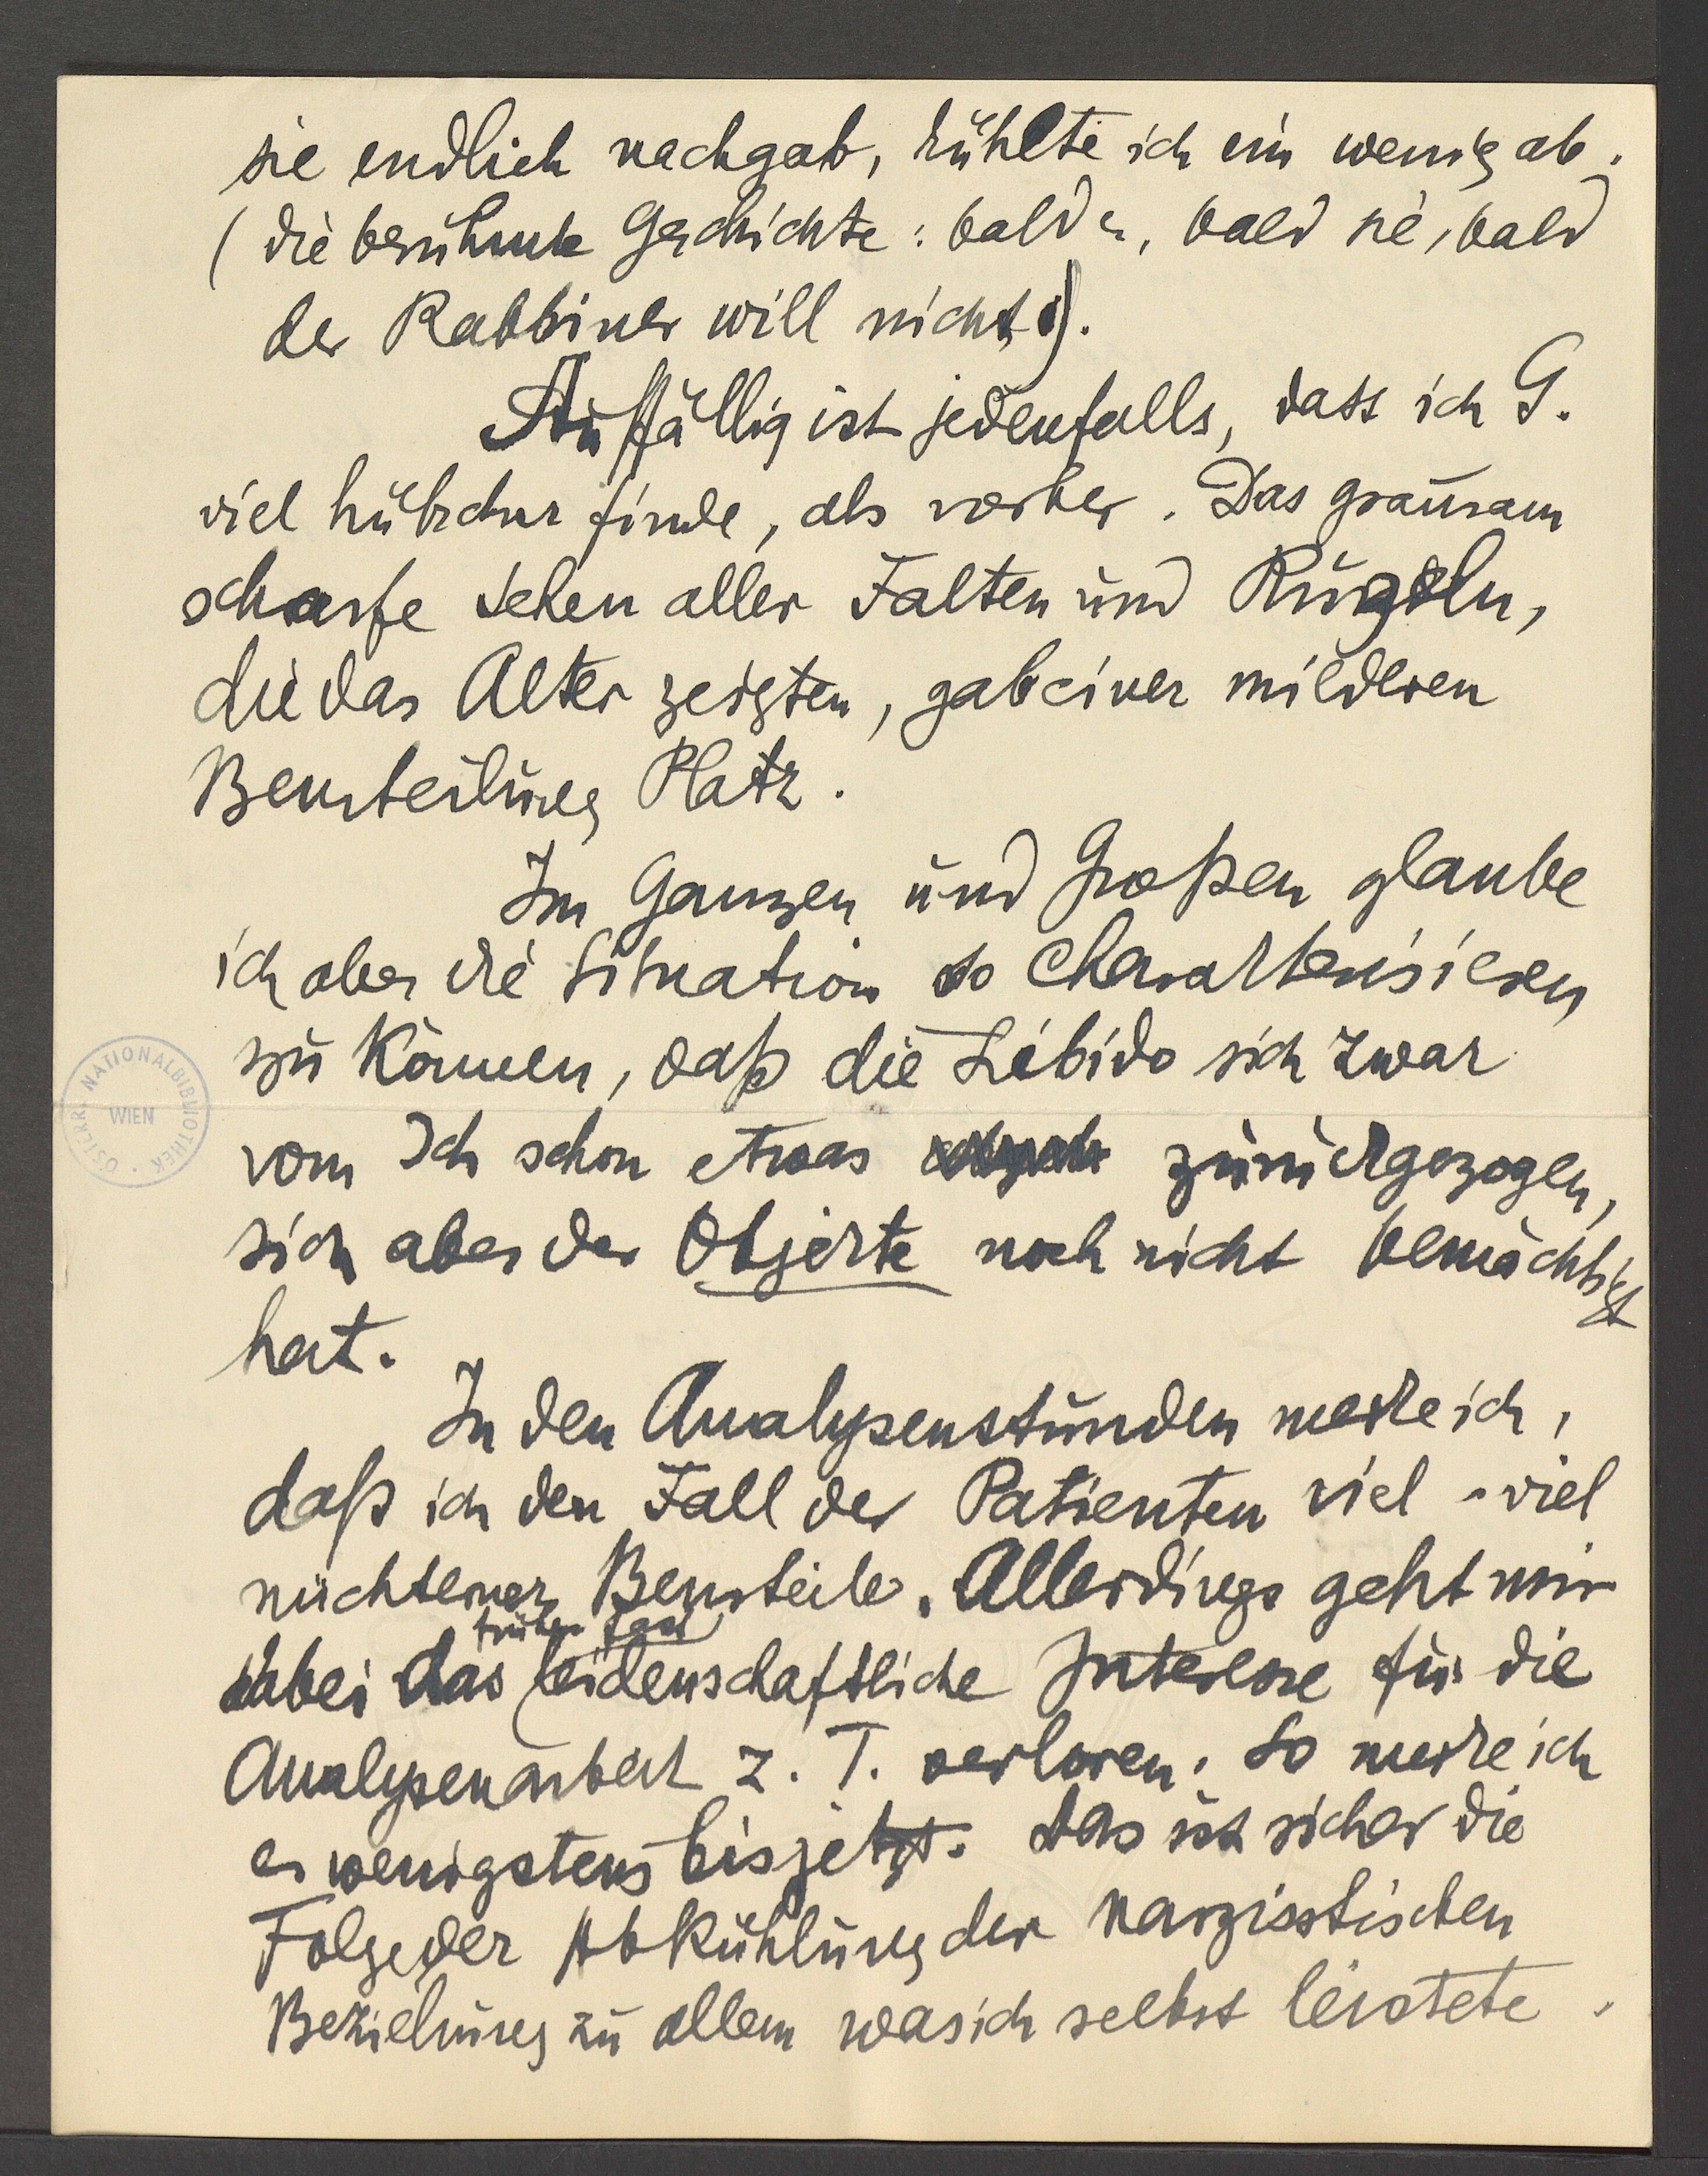 sie endlich nachgab, kühlte ich ein wenig ab.
(die berühmte Geschichte: bald er, bald sie, bald
der Rabbiner will nicht).
Auffällig ist jedenfalls, dass ich G.
viel hübscher finde, als vorher. Das grausam
scharfe Sehen aller Falten und Runzeln,
die das Alter zeigten, gab einer milderen
Beurteilung Platz.
Im Ganzen und Großen glaube
ich aber die Situation so charakterisieren
zu können, daß die Libido sich zwar
vom Ich schon etwas zurückgezogen,
sich aber der Objekte noch nicht bemächtigt
hat.
In den Analysenstunden merke ich,
daß ich den Fall der Patienten viel-viel
nüchterner Beurteile. Allerdings geht mir
früher fast
dabei das leidenschaftliche Interesse für die
Analysenarbeit z. T. verloren. So merke ich
es wenigstens bisjetzt. Das ist sicher die
Folge der Abkühlung der narzisstischen
Beziehung zu allem was ich selbst leistete.
ÖSTERR. NATIONALBIBLIOTHEK
WIEN